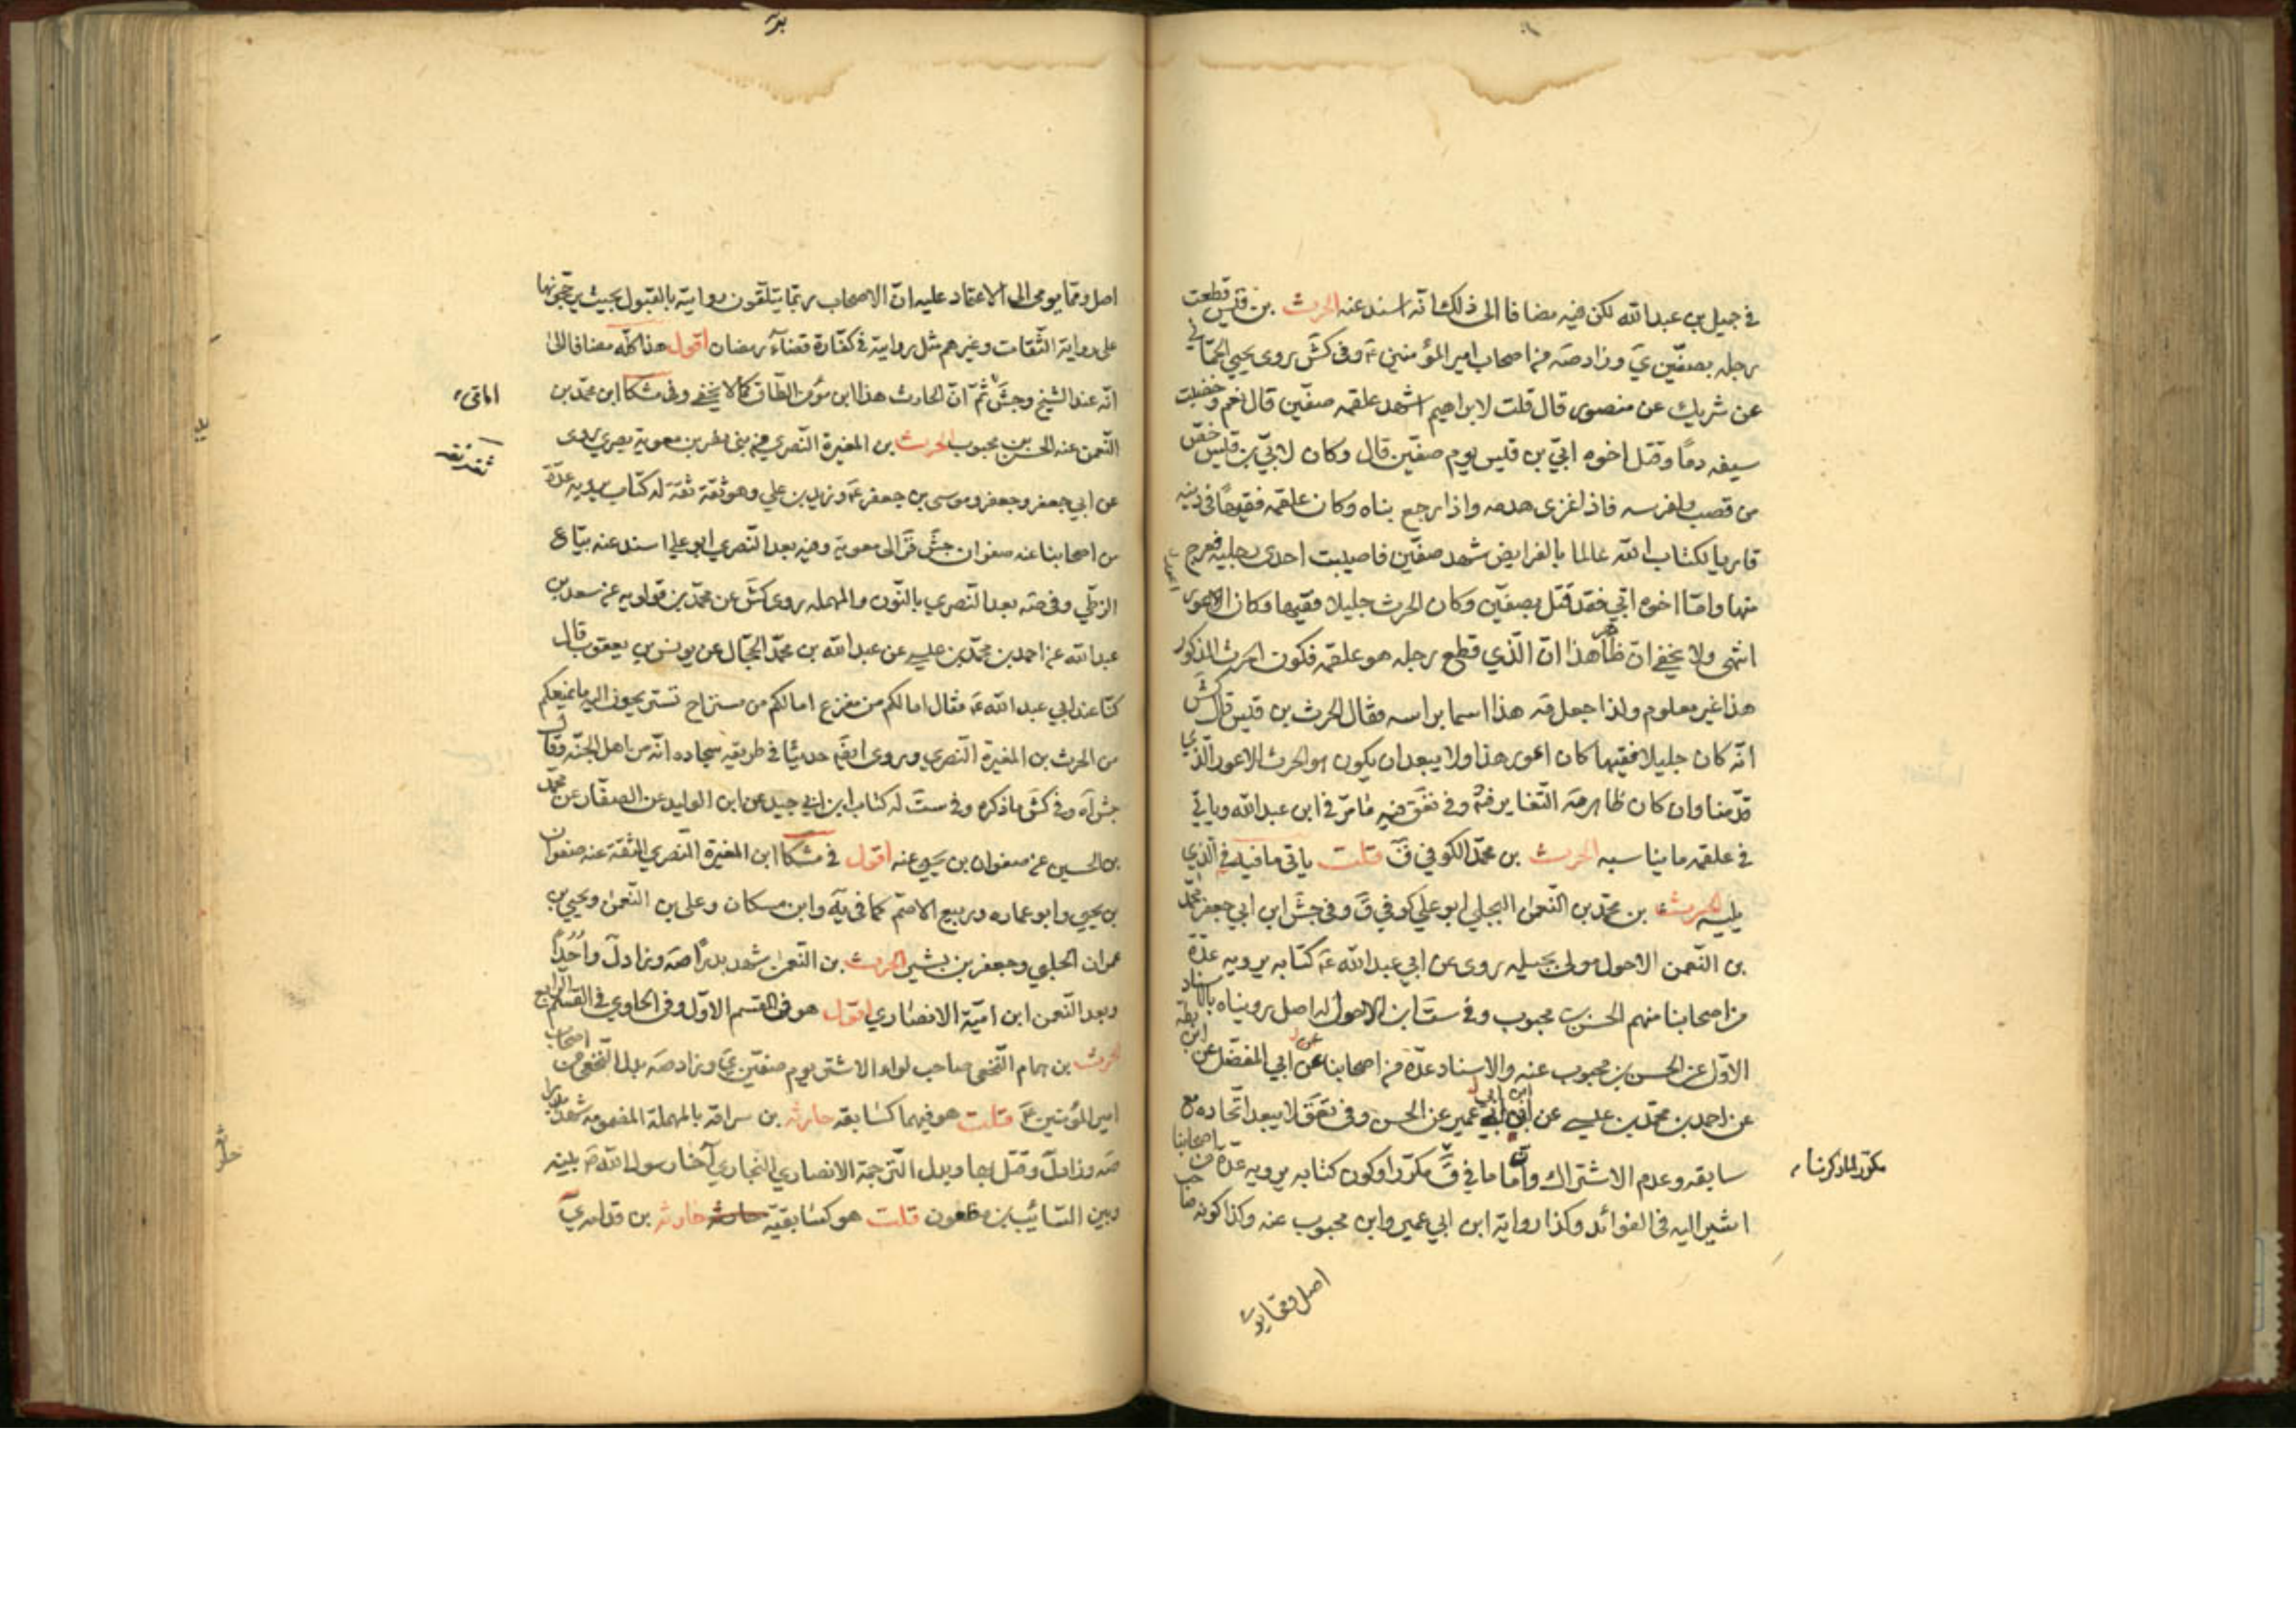 في جميل بن عبدالله لكن فيه مضافا الى ذلك انّه اسند عنه الحرث بن قيس قطعت
رجله بصفّين ي وزاد صه من اصحاب امير المؤمنين ع وفي كش روى يحيى الحمّاني
عن شريك عن منصور قال قلت لابراهيم اشهد علقمه صفّين قال نعم وخضبت
سيفه دمًا وقتل اخوه ابيّ بن قيس يوم صفّين قال وكان لابيّ بن قيس خصّ
من قصب ولفرسه فاذا غزى هدمه واذا رجع بناه وكان علقمه فقيهًا في دينه
قاريا لكتاب الله عالما بالفرايض شهد صفّين فاصيبت احدى رجليه فعرج
منها وامّا اخوه ابيّ فقد قتل بصفّين وكان الحرث جليلا فقيها وكان اعور
انتهى ولا يخفى انّ ظاهر هذا انّ الّذي قطع رجله هو علقمه فكون الحرث المذكور
هذا غير معلوم ولذا جعل مه هذا اسما براسه فقال الحرث بن قيس قال كش
انّه كان جليلا فقيها كان اعور هذا ولا يبعد ان يكون هو الحرث الاعور الّذي
قدّمنا وان كان ظاهر مه التغاير فتم وفي تعق فيه مامرّ في ابن عبدالله وياتي
في علقمه ما يناسبه الحرث بن محمّد الكوفي ق قلت ياتي ما فيه في الّذي
يليه الحرث بن محمّد بن النّعمن البجلي ابو علي كوفي ق وفي جش ابن ابي جعفر محمّد
بن النّعمن الاحول مولى بجيله روى عن ابي عبدالله ع كتابه يرويه عدّة
من اصحابنا منهم الحسن بن محبوب وفي ست ابن الاحول له اصل رويناه بالاسناد
الاوّل عن الحسن بن محبوب عنه والاسناد عدّة من اصحابنا عن ابي المفضّل عن ابن بطه
عن احمد بن محمّد بن عيسى عن ابن ابي عمير عن الحسن وفي تعق لا يبعد اتّحاده مع
سابقه وعدم الاشتراك وانّ ما في ق مكرّر وكون كتابه يرويه عدّة من اصحابنا
مكرّر لما ذكرنا
اشير اليه في الفوائد وكذا رواية ابن ابي عمير وابن محبوب عنه وكذا كونه صاحب
اصل وممّا يو
اصل وممّا يومى الى الاعتماد عليه انّ الاصحاب ربّما يتلّقون روايته بالقبول بحيث يرجّحونها
على رواية الثّقات وغيرهم مثل روايته في كفّارة قضآء رمضان اقول هذا كلّه مضافا الى
انّه عند الشيخ وجش ثمّ انّ الحارث هذا ابن مؤمن الطّاق كما لا يخفى وفي مشكا ابن محمّد بن
النّعمن عنه الحسن بن محبوب الحرث بن المغيرة النّصري من بني نصر بن معوية بصري روى
عن ابي جعفر وجعفر وموسى بن جعفر ع وزيد بن علي وهو ثقة ثقة له كتاب يرويه عدّة
ثقة ثقة
من اصحابنا عنه صفوان جش ق الى معوية وفيه بعد النّصري ابو علي اسند عنه بيّاع
الزطّي وفي صه بعد النّصري بالنّون والمهمله روى كش عن محمّد بن قولويه عن سعد بن
عبدالله عن احمد بن محمّد بن عيسى عن عبدالله بن محمّد الحجّال عن يونس بن يعقوب قال
كنّا عند ابي عبدالله ع فقال اما لكم من مفزع اما لكم من مستراح تستريحون اليه ما يمنعكم
من الحرث بن المغيرة النّصري وروى ايضًا حديثا في طريقه سجاده انّه من اهل الجنّه وقال
جش اه وفي كش ما ذكره وفي ست له كتاب ابن ابي جيد عن ابن الوليد عن الصفّار عن محمّد
بن الحسين عن صفوان بن يحيى عنه اقول في مشكا ابن المغيرة النّصري الثقة عنه صفوان
بن يحيى وابو عماره وربيع الاصمّ كما في يه وابن مسكان وعلي بن النّعمن ويحيى بن
عمران الحلبي وجعفر بن بشير الحرث بن النّعمن شهد بدرا صه وزاد ل واحدًا
وبعد النّعمن ابن اميّة الانصاري اقول هو في القسم الاوّل وفي الحاوي في القسم الرابع
الحرث بن همام النّخعي صاحب لواء الاشتر يوم صفّين ي وزاد صه بدل النّخعي من اصحاب
امير المؤمنين ع قلت هو فيهما كسابقه حارثه بن سراقه بالمهملة المضمومه شهد بدرا
صه وزاد ل وقتل بها وبدل التّرجمة الانصاري النجاري آخا رسول الله ص بينه
وبين السّائب بن مظعون قلت هو كسابقيّه حارثه بن قدامه ي